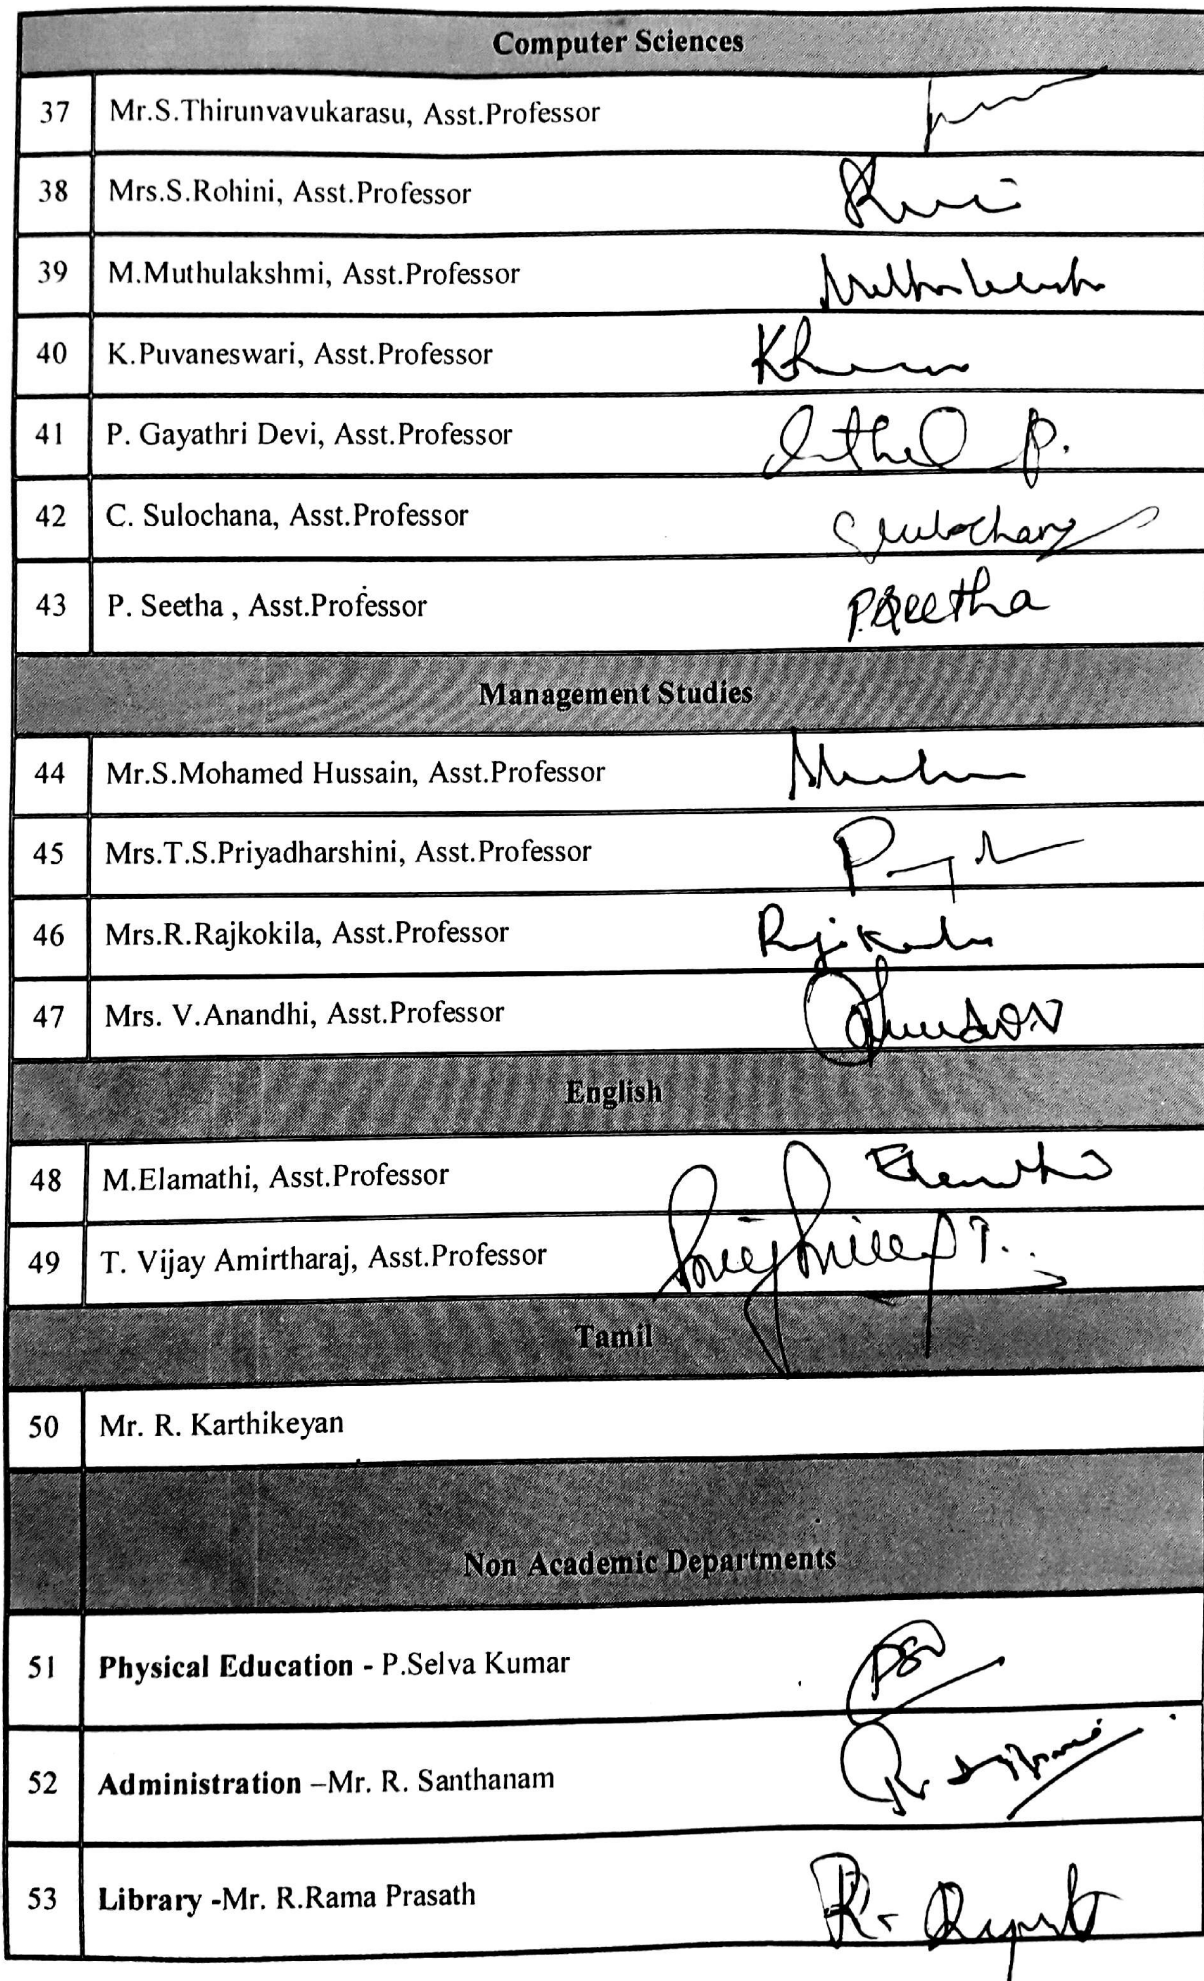 Computer Sciences
37 Mr.S.Thirunvavukarasu, Asst.Professor
38 Mrs.S.Rohini, Asst.Professor
39 M.Muthulakshmi, Asst.Professor
40 K.Puvaneswari, Asst.Professor
41 P. Gayathri Devi, Asst.Professor
42 C. Sulochana, Asst.Professor
43 P. Seetha , Asst.Professor P.Seetha
Management Studies
44 Mr.S.Mohamed Hussain, Asst.Professor
45 Mrs.T.S.Priyadharshini, Asst.Professor
46 Mrs.R.Rajkokila, Asst.Professor
47 Mrs. V.Anandhi, Asst.Professor
English
48 M.Elamathi, Asst.Professor
49 T. Vijay Amirtharaj, Asst.Professor
Tamil
50 Mr. R. Karthikeyan
Non Academic Departments
51 Physical Education - P.Selva Kumar
52 Administration –Mr. R. Santhanam
53 Library -Mr. R.Rama Prasath